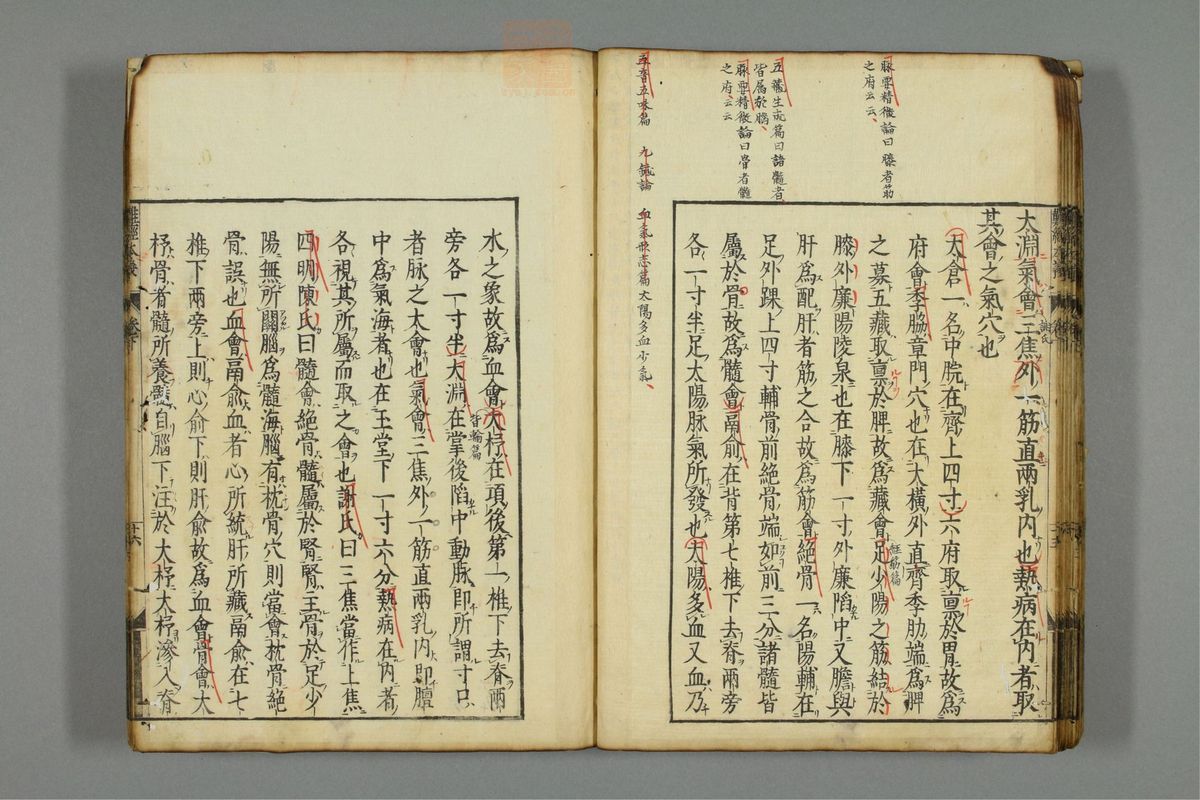 脉要精微論曰膝者筋
之府云云
五藏生成篇曰諸髓者
皆属於腦
脉要精微論曰骨者髓
之府云云
五音五味篇 九鍼論 血氣形志篇太陽多血少氣
太淵氣會三焦外一筋直兩乳内也熱病在内者取
其會之氣穴也
太倉一名中脘在齊上四寸六府取禀於胃故爲
府會季脇章門穴也在大橫外直齊季肋端爲脾
之募五藏取禀於脾故爲藏會足少陽之筋結於
經筋篇
膝外廉陽陵泉也在膝下一寸外廉陷中又膽與
肝爲配肝者筋之合故爲筋會絕骨一名陽輔在
足外踝上四寸輔骨前絕骨端如前三分諸髓皆
屬於骨故爲髓會鬲俞在背第七椎下去脊兩旁
各一寸半足太陽脉氣所發也太陽多血又血乃
水之象故爲血會大杼在項後第一椎下去脊兩
旁各一寸半大淵在掌後陷中動脉即所謂寸口
者脉之太會也氣會三焦外一筋直兩乳内即膻
中爲氣海者也在玉堂下一寸六分熱病在内者
各視其所屬而取之會也謝氏曰三焦當作上焦
四明陳氏曰髓會絕骨髓屬於腎腎主骨於足少
陽無所關腦爲髓海腦有枕骨穴則當會枕骨絕
骨誤也血會鬲俞血者心所統肝所藏鬲俞在七
椎下兩旁上則心俞下則肝俞故爲血會骨會大
杼骨者髓所養髓自腦下注於大杼大杼滲入脊